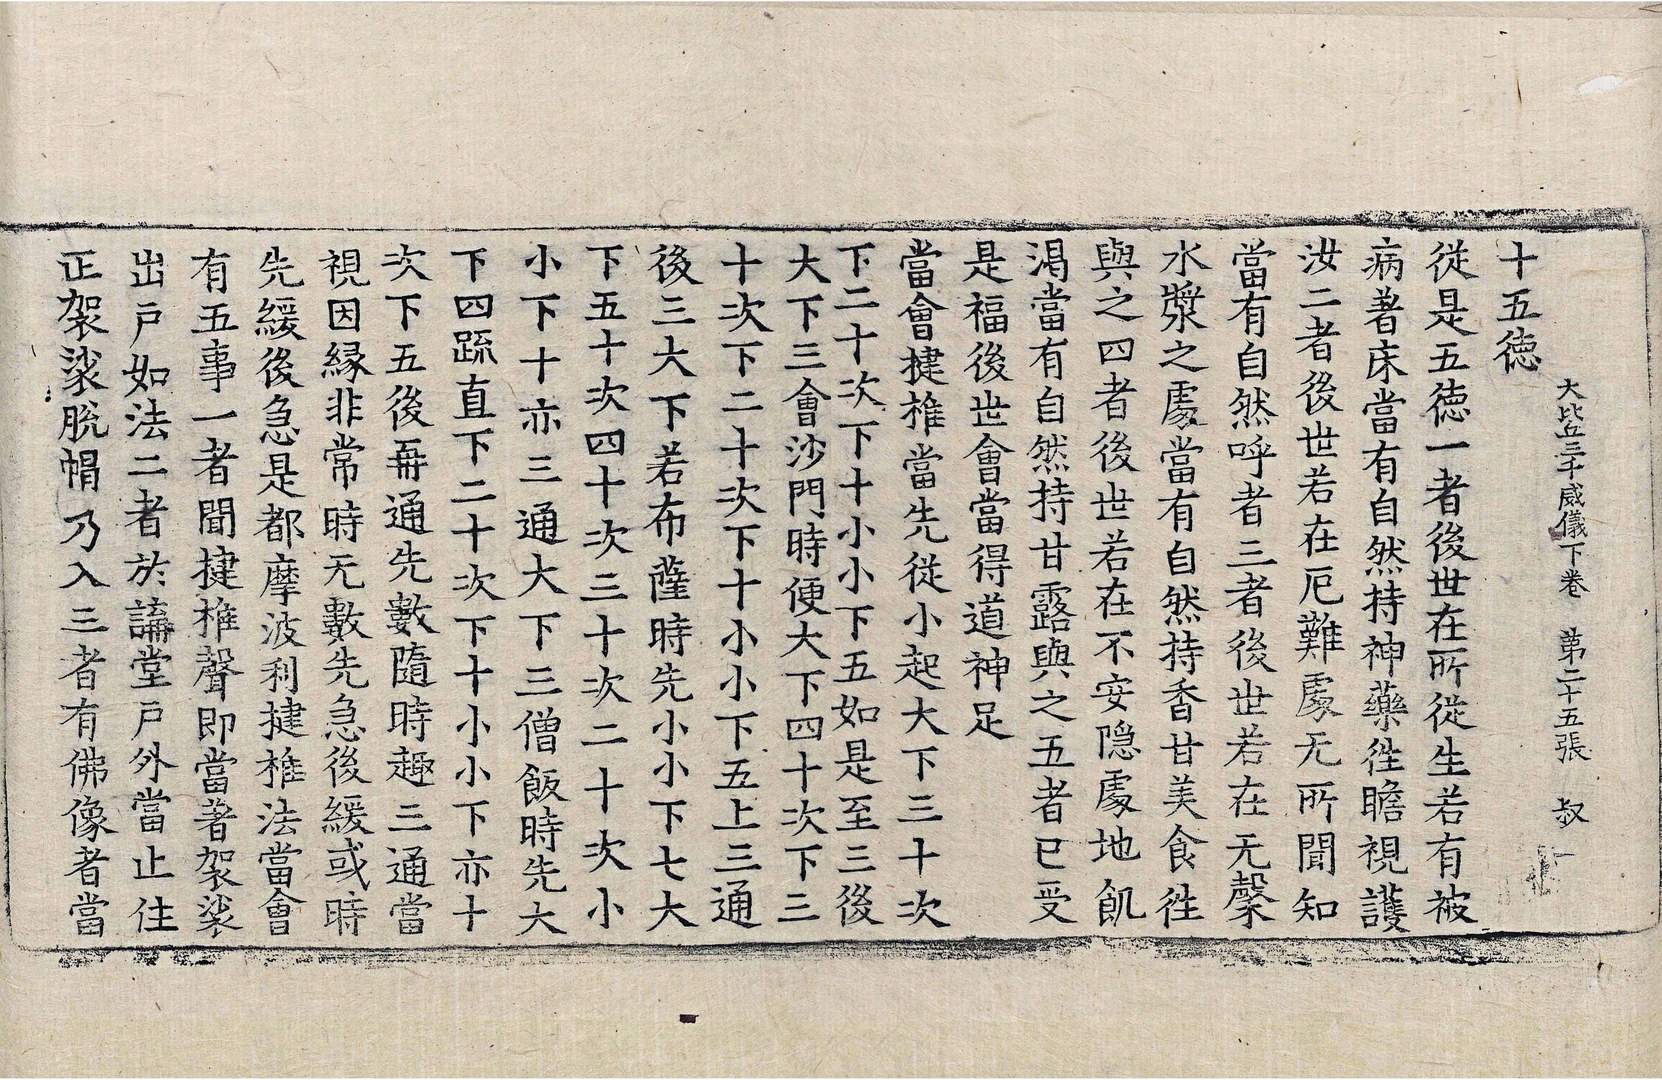 大比丘三千威儀下卷　第二十五張　叔
十五德
從是五德一者後世在所從生若有被
病著床當有自然持神藥徃瞻視護
汝二者後世若在厄難處无所聞知
當有自然呼者三者後世若在无漿
水漿之處當有自然持香甘美食徃
與之四者後世若在不安隠處地飢
渇當有自然持甘露與之五者已受
是福後世會當得道神足
當會揵椎當先從小起大下三十次
下二十次下十小小下五如是至三後
大下三會沙門時便大下四十次下三
十次下二十次下十小小下五上三通
後三大下若布薩時先小小下七大
下五十次四十次三十次二十次小
小下十亦三通大下三僧飯時先大
下四䟽直下二十次下十小小下亦十
次下五後再通先數隨時趣三通當
視因縁非常時无數先急後緩或時
先緩後急是都摩波利揵椎法當會
有五事一者聞揵椎聲即當著袈裟
出戶如法二者於講堂戶外當止住
正袈裟脫帽乃入三者有佛像者當